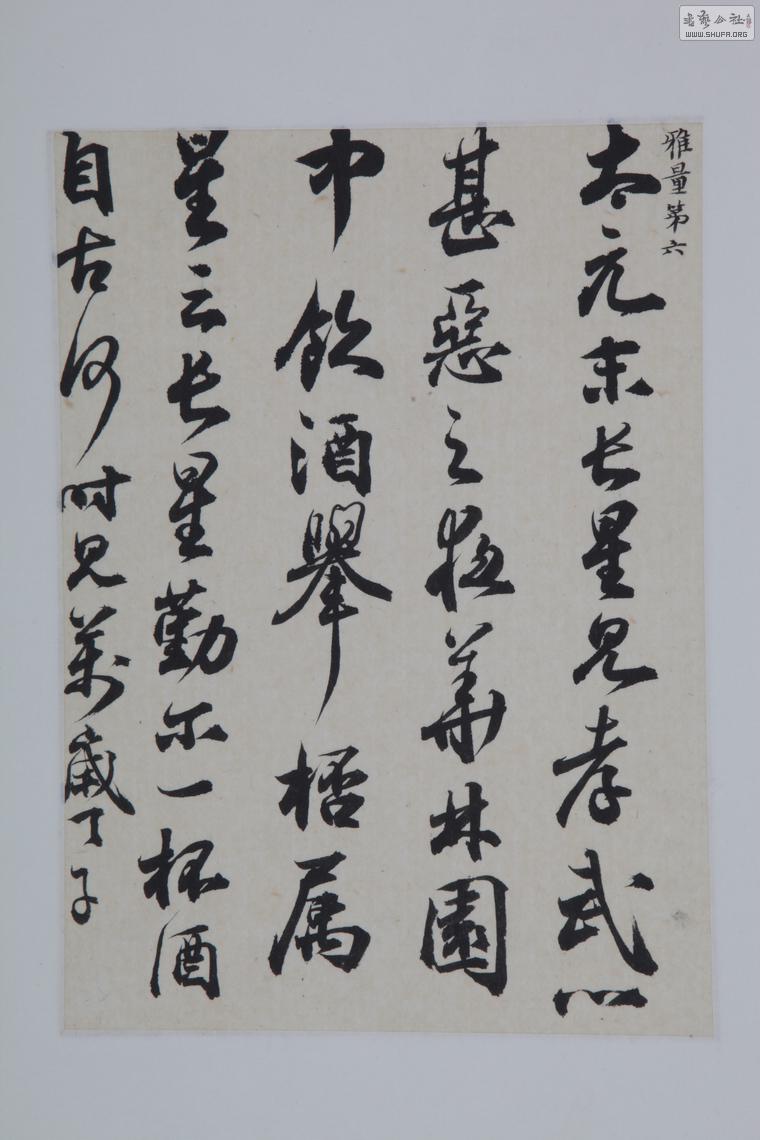 雅量第六
太元末長星見孝武心
甚惡之夜華林園
中飲酒舉桮屬
星云長星勸尔一杯酒
自古何時見萬歲天子
書藝公社
WWW.SHUFA.ORG